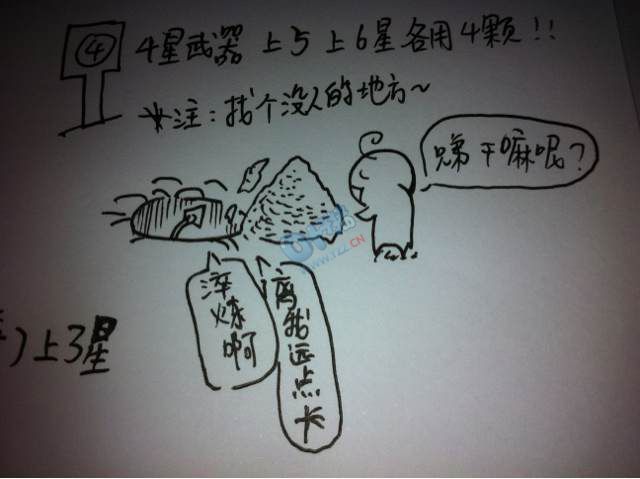 ④
4星武器上5上6星各用4颗!!
*注:找个没人的地方~
兄弟干嘛呢?
WWW.YZZ.CN
淬炼啊
离我远点卡
)上3星